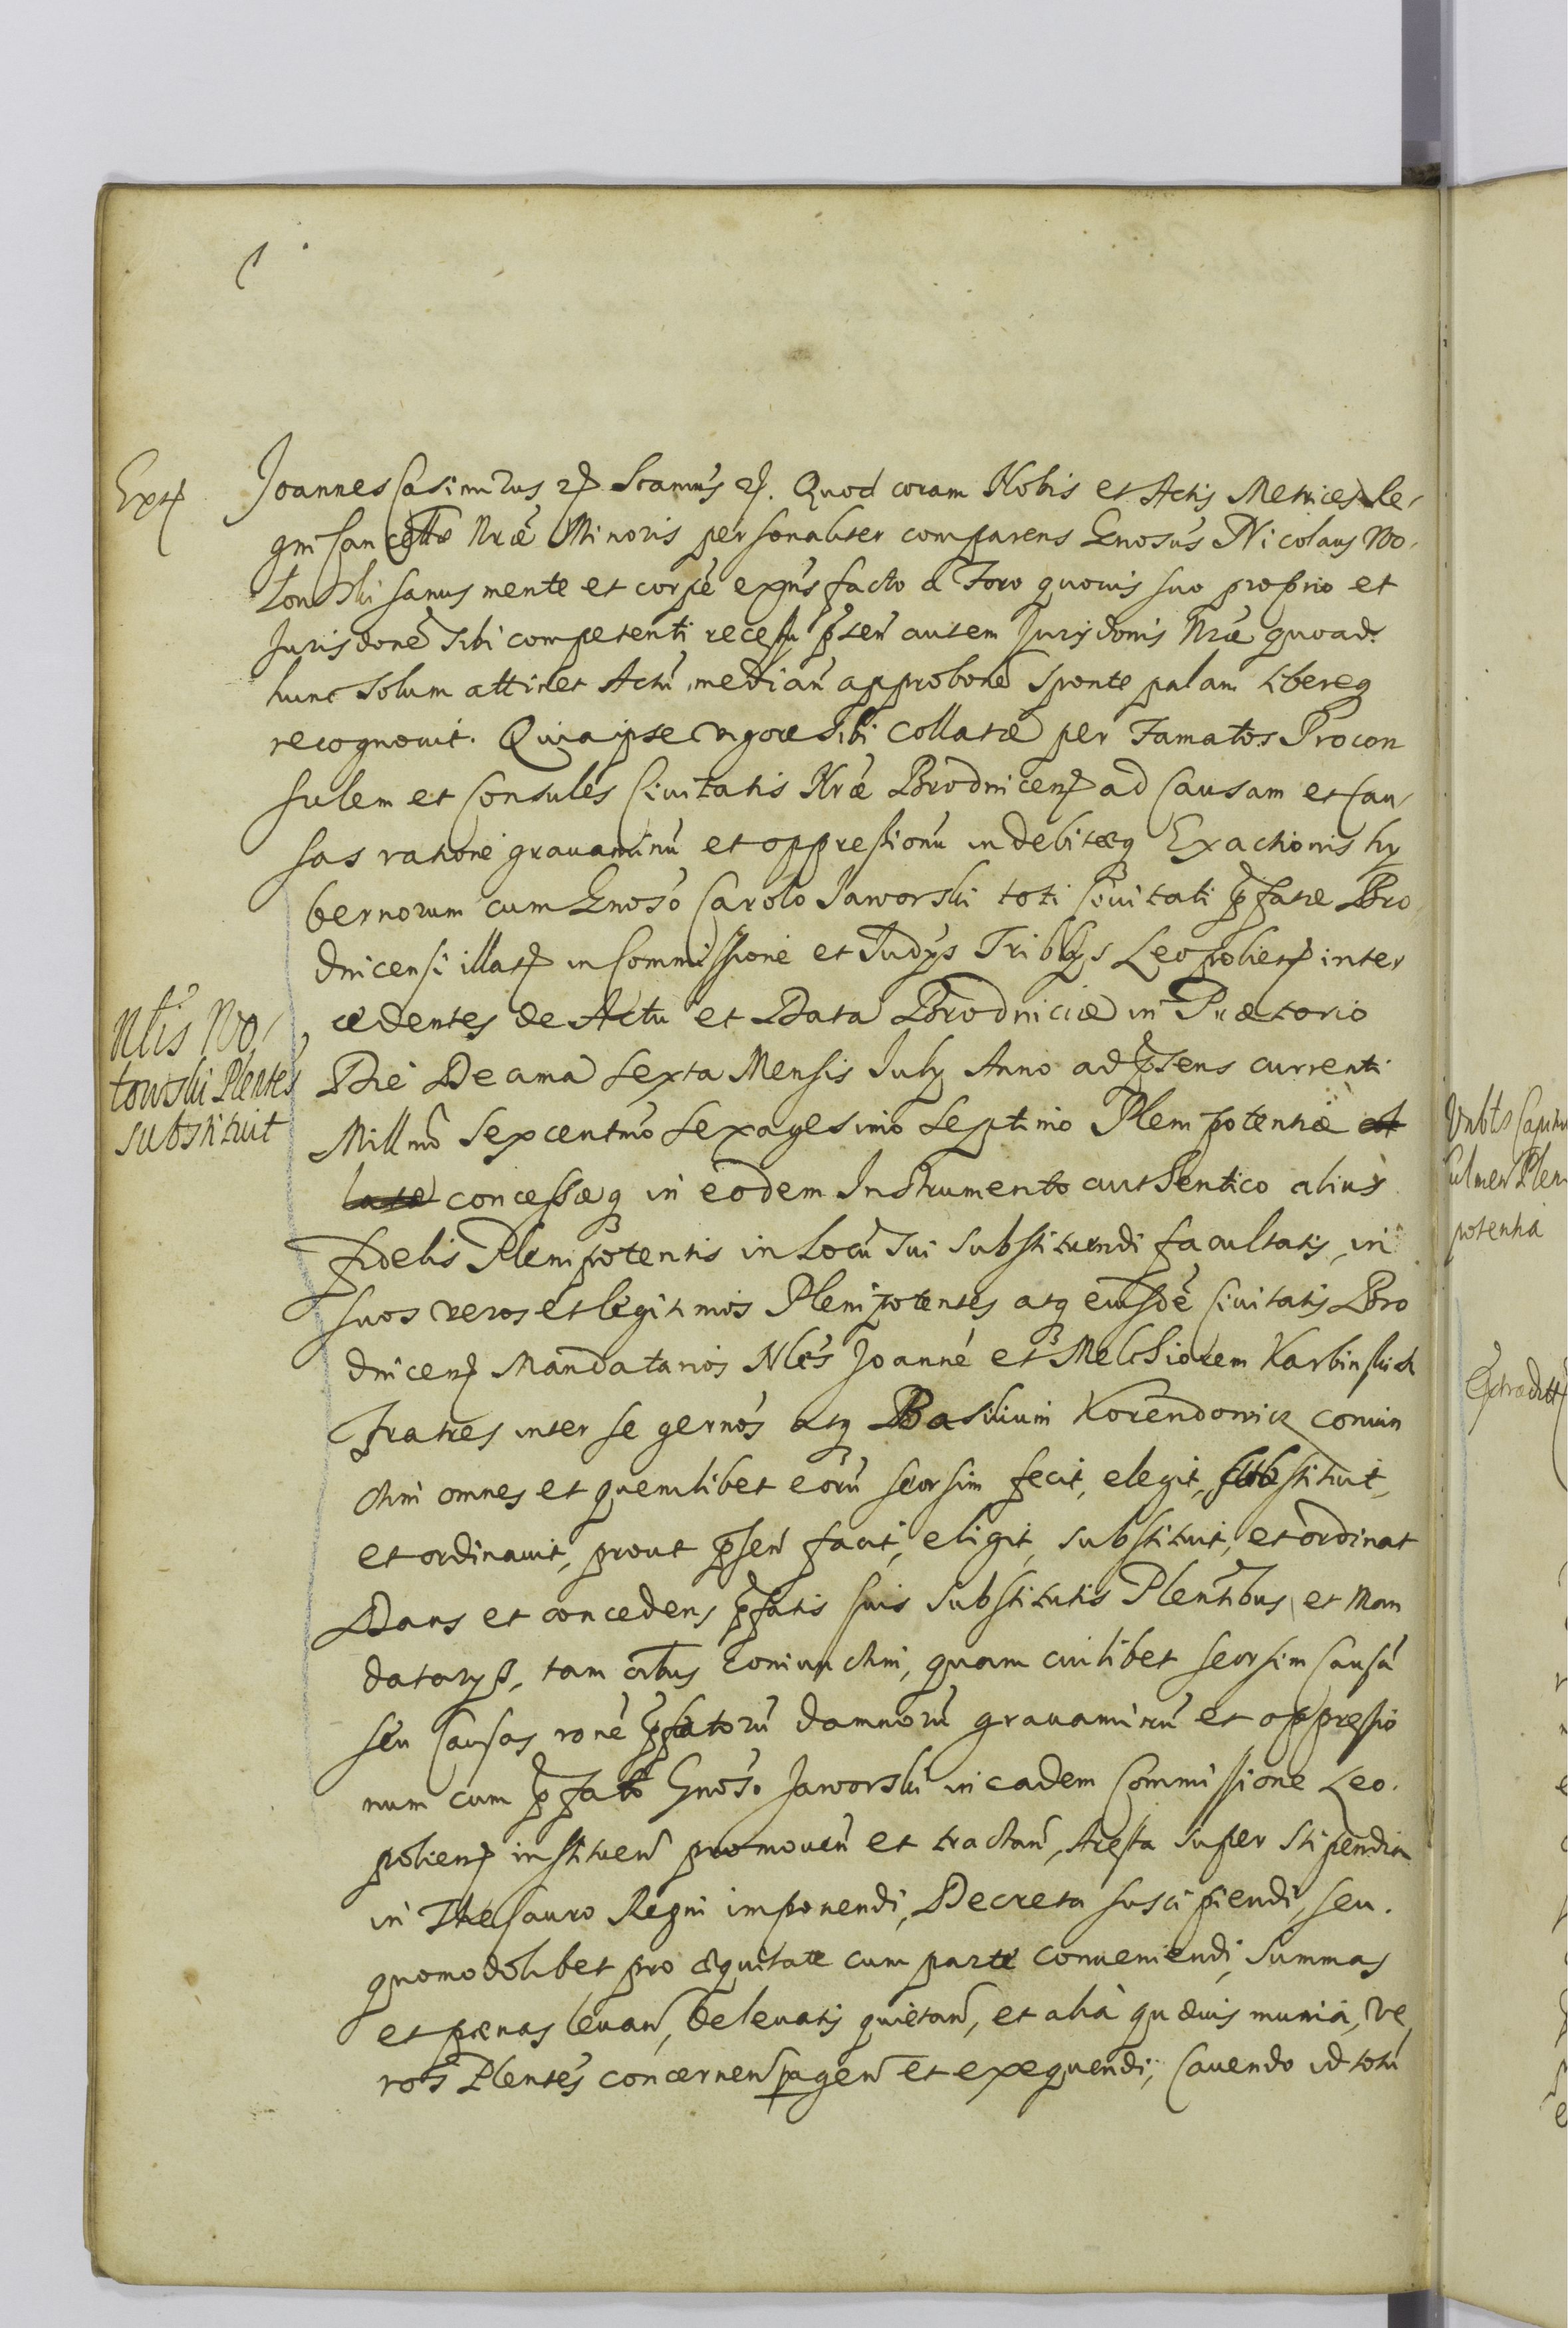 Extr
Joannes Casimirus etc. Scamus etc. Quod coram Nobis et Actis Metrices Re-
gni Cancellae Nrae Minoris personaliter comparens Gnosus Nicolaus Wo-
towski sanus mente et corpe exnns facto a Foro quovis suo proprio et
Jurisdone sibi competenti recessu, psen autem Jurisdonis Nrae quoad
hunc solum attinet Actu median approbone sponte palam libereq
recognovit. Quia ipse vigore sibi collatae per Famatos Procon
sulem et Consules Civitatis Nrae Brodnicen ad Causam et Cau-
sas ratione gravaminu et oppressionu indebitaeq Exactionis hy
bernorum cum Gnoso Carolo Jaworski toti Civitati pfatae Bro
dnicensi illat in Commissione et Judys Triblbs Leopolien inter
cedentes de Actu et Data Brodniciae in Praetorio
Die Decima Sexta Mensis July Anno ad psens currenti
Millmo Sexcentmo Sexagesimo Septimo Plenipotentiae
concessaeq in eodem Instrumento authentico alius
fidelis Plenipotentis in Locu sui substituendi facultatis, in
suos veros et legitimos Plenipotentes atq eiusde Civitatis Bro
dnicen Mandatarios Nles Joanne et Melchiorem Karbinskich
Fratres inter se gernos atq Basilium Korendowicz coniun
ctim omnes et quemlibet eoru seorsim fecit, elegit, substituit,
et ordinavit, prout psen facit, eligit, substituit, et ordinat
Dans et concedens pfatis suis substitutis Plentibus, et Man
datarys, tam oibus coniunctim, quam cuilibet seorsim Causa
seu Causas rone pfatoru damnoru gravaminu et oppressio
num cum pfato Gnoso Jaworski in eadem Commissione Leo-
polien instituen promoven et tractan, Aresta super stipendia
in Thesauro Regni imponendi, Decreta suscipiendi, seu
quomodolibet pro aequitate cum parte conveniendi, Summas
et paenas levan, de levatis quietan, et alia quaevis munia, ve
ros Plentes concernen pagen et exequendi, Cavendo id totu
Nlis Wo-
towski Plentes
substituit
Vnblis Capitu
Culmen Pleni
potentia
Extraditt